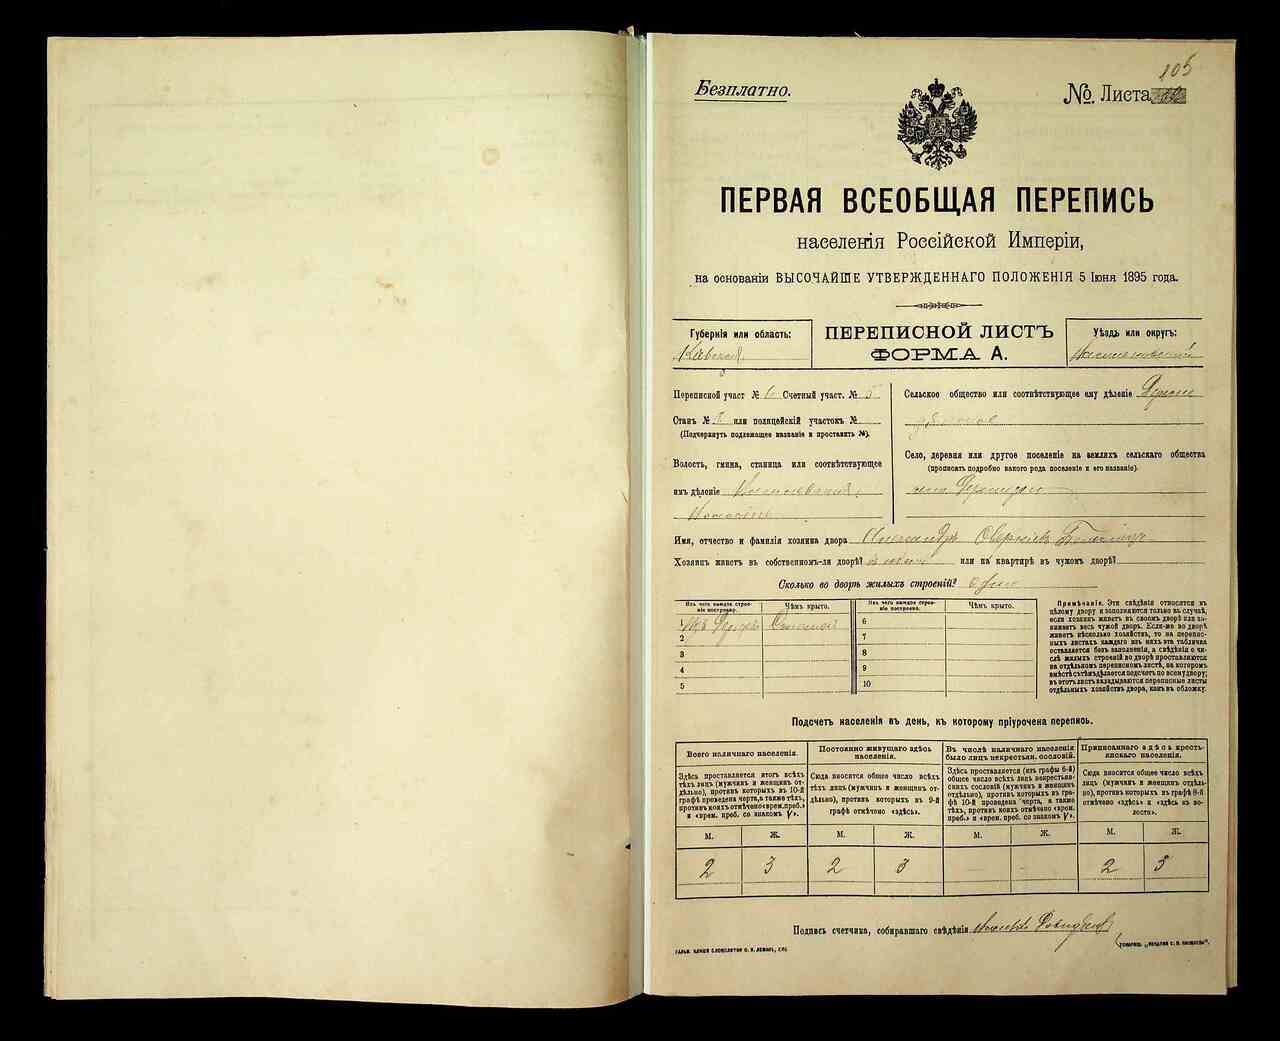 105
Безплатно.
№ Листа
ПЕРВАЯ ВСЕОБЩАЯ ПЕРЕПИСЬ
населенія Россійской Имперіи,
на основаніи ВЫСОЧАЙШЕ УТВЕРЖДЕННАГО ПОЛОЖЕНІЯ 5 Іюня 1895 года.
Губернія или область:
ПЕРЕПИСНОЙ ЛИСТЪ
ФОРМА А.
Уѣздъ или округъ:
Переписной участ № 6 Счетный участ. № 5
Станъ № или полицейскій участокъ №
(Подчеркнуть подлежащее названіе и проставить №).
Волость, гмина, станица или соотвѣтствующее
имъ дѣленіе
Сельское общество или соотвѣтствующее ему дѣленіе
Село, деревня или другое поселеніе на земляхъ сельскаго общества
(прописать подробно какого рода поселеніе и его названіе).
село
Имя, отчество и фамилія хозяина двора
Хозяинъ живетъ въ собственномъ-ли дворѣ? или на квартирѣ въ чужомъ дворѣ?
Сколько во дворѣ жилыхъ строеній? одно
Изъ чего каждое строеніе построено. Чѣмъ крыто. Изъ чего каждое строеніе построено. Чѣмъ крыто.
1 Соломой 6
2 7
3 8
4 9
5 10
Примѣчаніе. Эти свѣдѣнія относятся къ
цѣлому двору и заполняются только въ случаѣ,
если хозяинъ живетъ въ своемъ дворѣ или занимаетъ
весь чужой дворъ. Если-же во дворѣ
живетъ нѣсколько хозяйствъ, то на переписныхъ
листахъ каждаго изъ нихъ эта табличка
оставляется безъ заполненія, а свѣдѣнія о числѣ
жилыхъ строеній во дворѣ проставляются
на отдѣльномъ переписномъ листѣ, на которомъ
вмѣстѣ съ тѣмъ дѣлается подсчетъ по всему двору;
въ этотъ листъ вкладываются переписные листы
отдѣльныхъ хозяйствъ двора, какъ въ обложку.
Подсчетъ населенія въ день, къ которому пріурочена перепись.
Всего наличнаго населенія.
Здѣсь проставляется итогъ всѣхъ
тѣхъ лицъ (мужчинъ и женщинъ отдѣльно),
противъ которыхъ въ 10-й
графѣ проведена черта, а также тѣхъ,
противъ коихъ отмѣчено «врем. преб.»
и «врем. преб. со знакомъ V».
Постоянно живущаго здѣсь
населенія.
Сюда вносится общее число всѣхъ
тѣхъ лицъ (мужчинъ и женщинъ отдѣльно),
противъ которыхъ въ 9-й
графѣ отмѣчено «здѣсь».
Въ числѣ наличнаго населенія
было лицъ некрестьян. сословій.
Здѣсь проставляется (изъ графы 6-й)
общее число всѣхъ лицъ некрестьянскихъ
сословій (мужчинъ и женщинъ
отдѣльно), противъ которыхъ въ графѣ
10-й проведена черта, а также
тѣхъ, противъ коихъ отмѣчено «врем.
преб.» и «врем. преб. со знакомъ V».
Приписаннаго здѣсь крестьянскаго
населенія.
Сюда вносится общее число всѣхъ
лицъ (мужчинъ и женщинъ отдѣльно),
противъ которыхъ въ графѣ 8-й
отмѣчено «здѣсь» и «здѣсь въ волости».
М. Ж. М. Ж. М. Ж. М. Ж.
2 3 2 3 - - 2 3
Подпись счетчика, собиравшаго свѣдѣнія